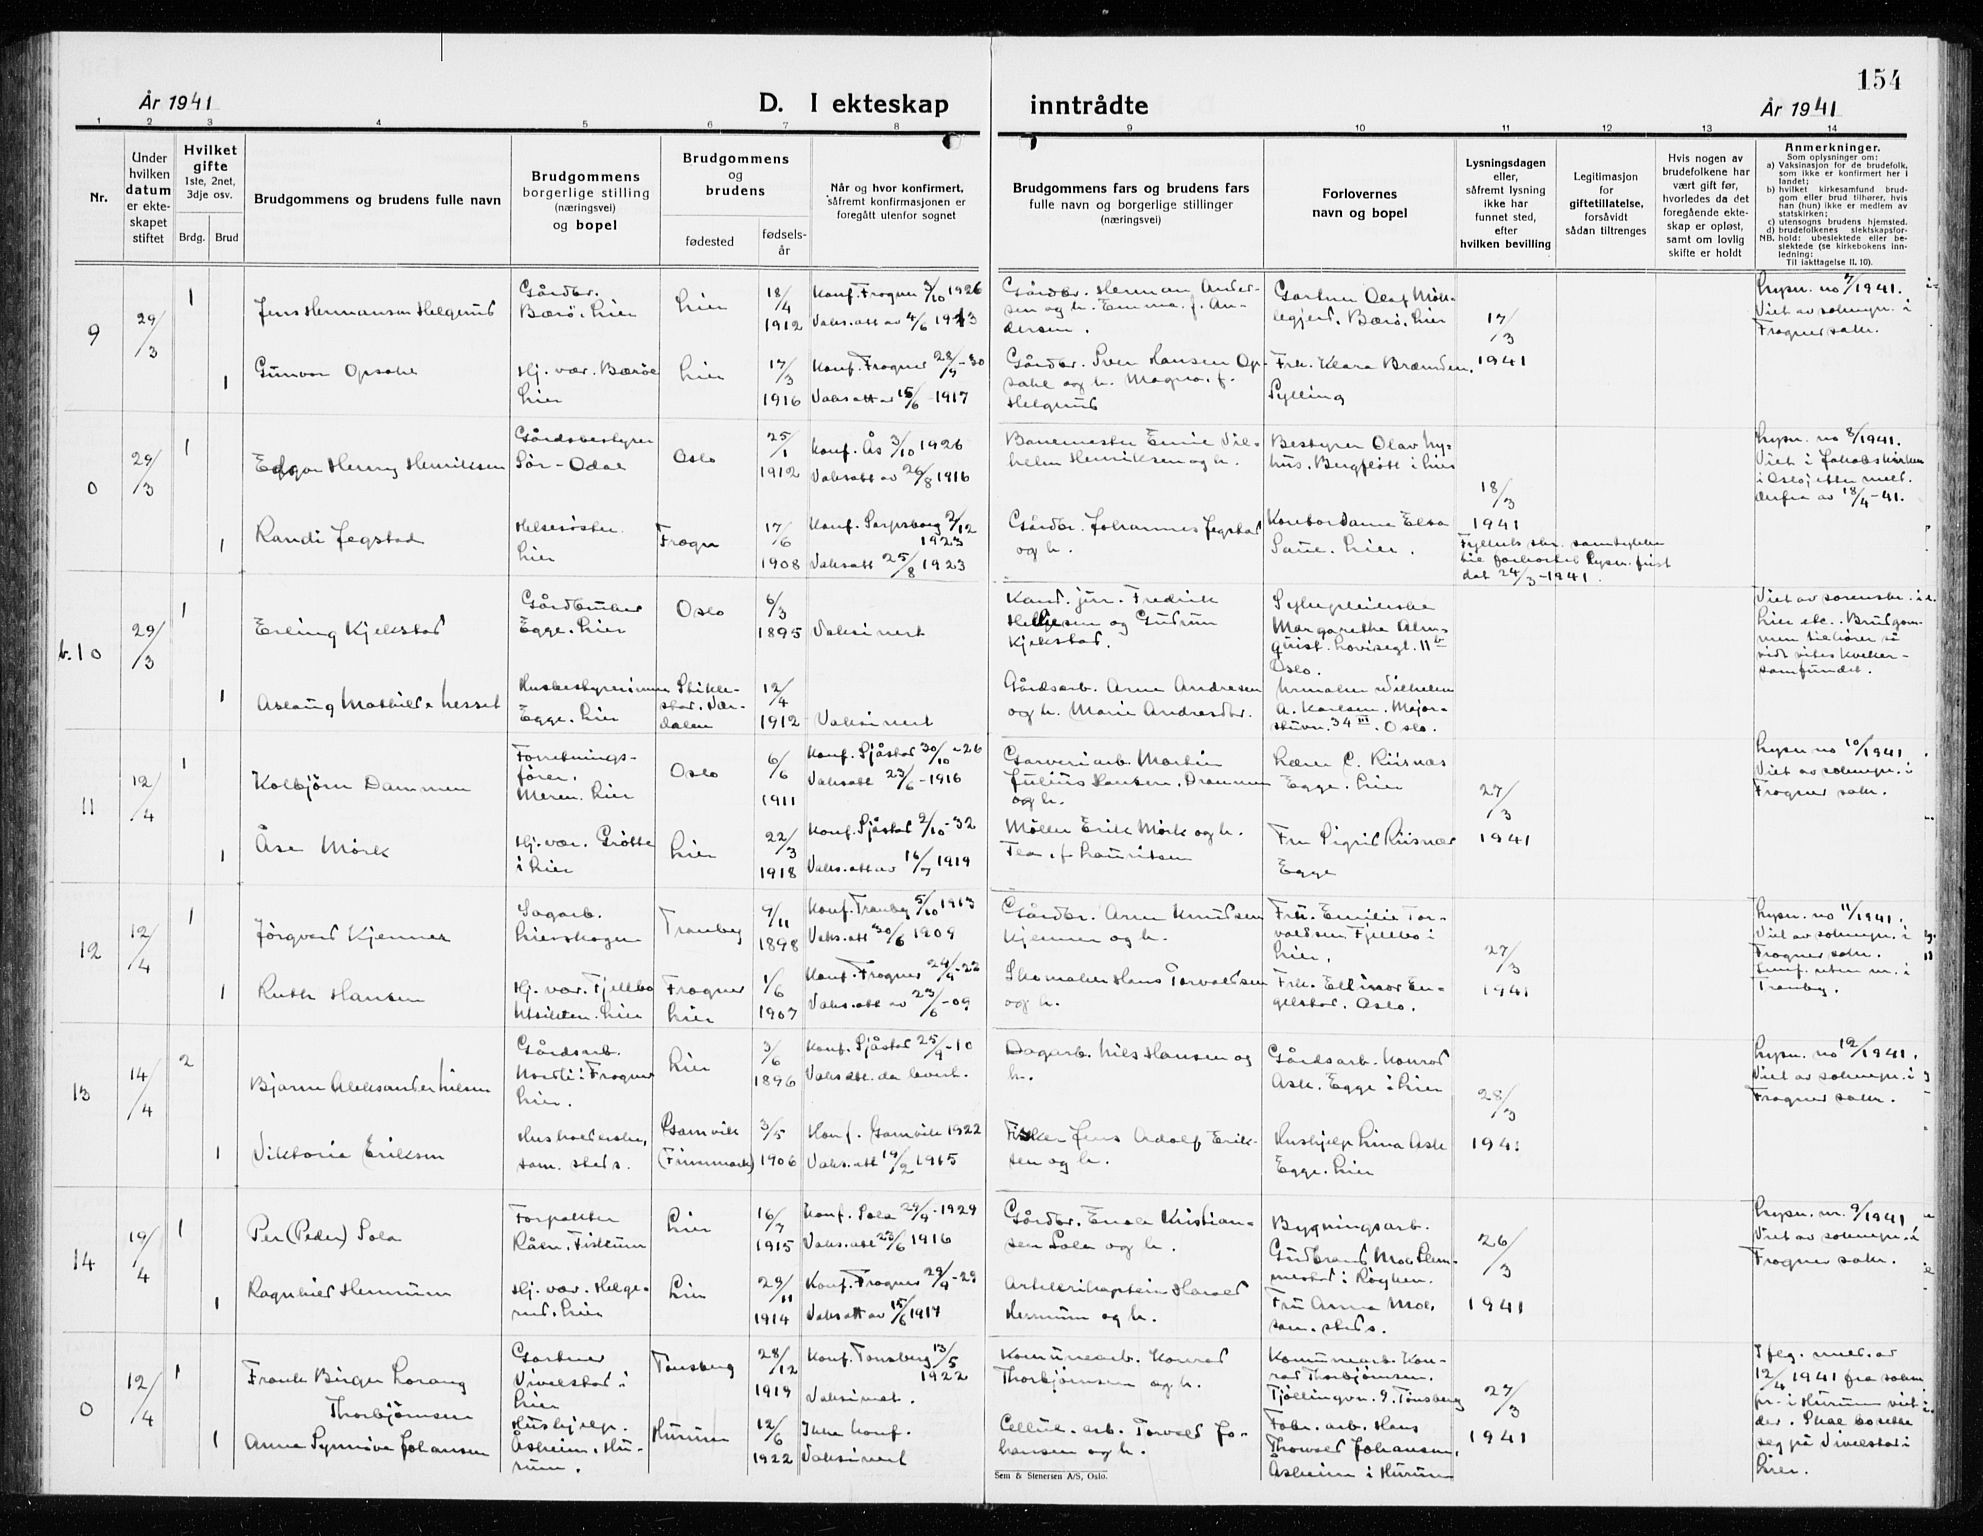 154
År 1941
D. I ekteskap inntrådte
År 1941
1 2 3 4 5 6 7 8 9 10 11 12 13 14
Nr.
Under
hvilken
datum
er ekte-
skapet
stiftet
Hvilket
gifte
1ste, 2net,
3dje osv.
Brdg. Brud
Brudgommens og brudens fulle navn
Brudgommens
borgerlige stilling
(næringsvei)
og bopel
Brudgommens
og
brudens
fødested
fødsels-
år
Når og hvor konfirmert,
såfremt konfirmasjonen er
foregått utenfor sognet
Brudgommens fars og brudens fars
fulle navn og borgerlige stillinger
(næringsvei)
Forlovernes
navn og bopel
Lysningsdagen
eller,
såfremt lysning
ikke har
funnet sted,
efter
hvilken bevilling
Legitimasjon
for
giftetillatelse,
forsåvidt
sådan tiltrenges
Hvis nogen av
brudefolkene har
vært gift før,
hvorledes da det
foregående ekte-
skap er opløst,
samt om lovlig
skifte er holdt
Anmerkninger.
Som oplysninger om:
a) Vaksinasjon for de brudefolk,
som ikke er konfirmert her i
landet;
b) hvilket kirkesamfund brud-
gom eller brud tilhører, hvis
han (hun) ikke er medlem av
statskirken;
c) utensogns brudens hjemsted.
d) brudefolkenes slektskapsfor-
hold: ubeslektede eller be-
slektede (se kirkebokens inn-
ledning:
NB.
Til iakttagelse II. 10).
9
29/3
1
Jens Hermansen Helgerud
Gårdbr.
Bærö, Lier
Lier
18/4
1912
Konf. Frogner 3/10 1926
Vaks.att av 4/6 1913
Gårdbr. Herman Ander-
sen og h. Emma f. An-
dersen.
Gartner Olaf Möl-
legjerd, Bærö, Lier
17/3
1941
Lysn. no 7/1941.
Viet av soknepr. i
Frogner sokn.
1
Gunvor Opsahl
Hj. vær. Bæröe
Lier
Lier
17/3
1916
Konf. Frogner 28/9-30
Vaksatt av 15/6 1917
Gårdbr. Sven Hansen Op-
sahl og h. Magna. f.
Helgerud
Frk. Klara Brænden,
Sylling
0
29/3
1
Edgar Henry Henriksen
Gårdsbestyrer
Sör-Odal
Oslo
25/1
1912
Konf. Ås 3/10 1926
Vaksatt av 26/8 1916
Banemester Emil Vil-
helm Henriksen og h.
Bestyrer Olav Ny-
hus, Bergflött i Lier
18/3
1941
Lysn. no 8/1941.
Viet i Jakobskirken
i Oslo, etter meld.
derfra av 18/4-41.
1
Randi Jegstad
Helsesöster
Lier
Frogn
17/6
1908
Konf. Sarpsborg 2/12
1923
Vaksatt 25/8 1923
Gårdbr. Johannes Jegstad
og h.
Kontordame Elsa
Saue. Lier.
Fylkets skr. samtykke
til forkortet lysn. frist
dat 24/3-1941.
b. 10
29/3
1
Erling Kjekstad
Gårdbruker
Egge, Lier
Oslo
6/3
1895
Vaksinert
Kand. jur. Fredrik
Hellesen og Gudrun
Kjekstad.
Sykepleierske
Margarethe Alm-
quist. Lovisegt. 11 b
Oslo.
Viet av sorenskr. i
Lier etc. Brudgom-
men tilhører så
vidt vites Kveker-
samfundet.
1
Aslaug Mathilde Nesset
Husbestyrerinne
Egge, Lier
Stikle-
stad, Vær-
dalen
12/4
1912
Vaksinert
Gårdsarb. Arne Andresen
og h. Marie Andresdtr.
Urmaker Wilhelm
A. Karlsen, Major-
stuvn. 34 III. Oslo.
11
12/4
1
Kolbjörn Dammen
Forretnings-
förer,
Meren. Lier
Oslo
6/6
1911
Konf. Sjåstad 30/10-26
Vaksatt 23/6-1916
Garveriarb. Martin
Julius Hansen, Drammen
og h.
Lærer C. Riisnæs
Egge, Lier
27/3
1941
Lysn no 10/1941
Viet av soknepr. i
Frogner sokn.
1
Åse Mörk
Hj. vær. Grötte
i Lier
Lier
22/3
1918
Konf. Sjåstad 2/10-32
Vaks.att av 16/7 1919
Möller Erik Mörk og h.
Tea, f. Lauritsen
Fru Sigrid Riisnæs
Egge
12
12/4
1
Jörgvard Kjenner
Sagarb.
Lierskogen
Tranby
7/11
1898
Konf. Tranby 5/10 1913
Vaks.att 30/6 1909
Gårdbr. Arne Knudsen
Kjenner og h.
Fru. Emilie Tor-
valdsen Fjellbo i
Lier.
27/3
1941
Lysn. no 11/1941.
Viet av soknepr. i
Frogner sokn.
Tranby.
1
Ruth Hansen
Hj. vær. Fjellbo
Utsikten, Lier
Frogner
Lier
1/6
1907
Konf. Frogner 24/9-22
Vaks.att av 23/6-09
Skomaker Hans Torvaldsen
og h.
Frk. Ellinor En-
gelstad, Oslo.
13
14/4
2
Bjarne Aleksander Nilsen
Gårdsarb.
Nordli i Frogner
Lier.
Lier
3/6
1896
Konf. Sjåstad 25/9-10
Vaks.att. da levert.
Dagarb. Nils Hansen og
h.
Gårdsarb. Konrad
Ask. Egge i Lier
28/3
1941
Lysn. no 12/1941.
Viet av soknepr. i
Frogner sokn.
1
Viktoria Eriksen
Husholderske,
sam. steds.
Gamvik
(Finnmark)
3/5
1906
Konf. Gamvik 1922
Vaks.att 19/2 1915
Fisker Jens Adolf Erik-
sen og h.
Hushjelp Lina Ask
Egge. Lier
14
19/4
1
Per (Peder) Sola
Forpakter
Råen, Fiskum
Lier
16/7
1915
Konf. Sola 29/9-1929
Vaks.att 23/6 1916
Gårdbr. Emil Kristian-
sen Sola og h.
Bygningsarb.
Gudbrand Moe Slem-
mestad i Röyken.
26/3
1941
Lysn. nr. 9/1941
Viet av soknepr. i
Frogner sokn.
1
Ragnhild Hennum
Hj. vær. Helge-
rud, Lier
Lier
29/11
1914
Konf. Frogner 29/9-29
Vaksatt av 15/6 1917
Artillerikaptein Harald
Hennum og h.
Fru Anna Moe,
sam. steds.
0
12/4
1
Frank Birger Lorang
Thorbjörnsen
Gartner
Vivelstad i
Lier
Tönsberg
28/12
1919
Konf. Tönsberg 13/5
1922
Vaksinat.
Komunearb. Konrad
Thorbjörnsen og h.
Komunearb. Kon-
rad Thorbjörnsen.
Tjöllingvn. 9. Tönsberg
27/3
1941
Ifg. meld. av
12/4 1941 fra sokne
pr. i Hurum viet
der. Skal bosette
seg på Vivelstad i
Lier.
1
Anna Synnöve Johansen
Hushjelp.
Åsheim, Hu-
rum.
Hurum
12/6
1922
Ikke konf.
Vaksinert
Cellul. arb. Torvald Jo-
hansen og h.
Fabr. arb. Hans
Thorvald Johansen,
Åsheim i Hurum
Sem & Stenersen A/S, Oslo.